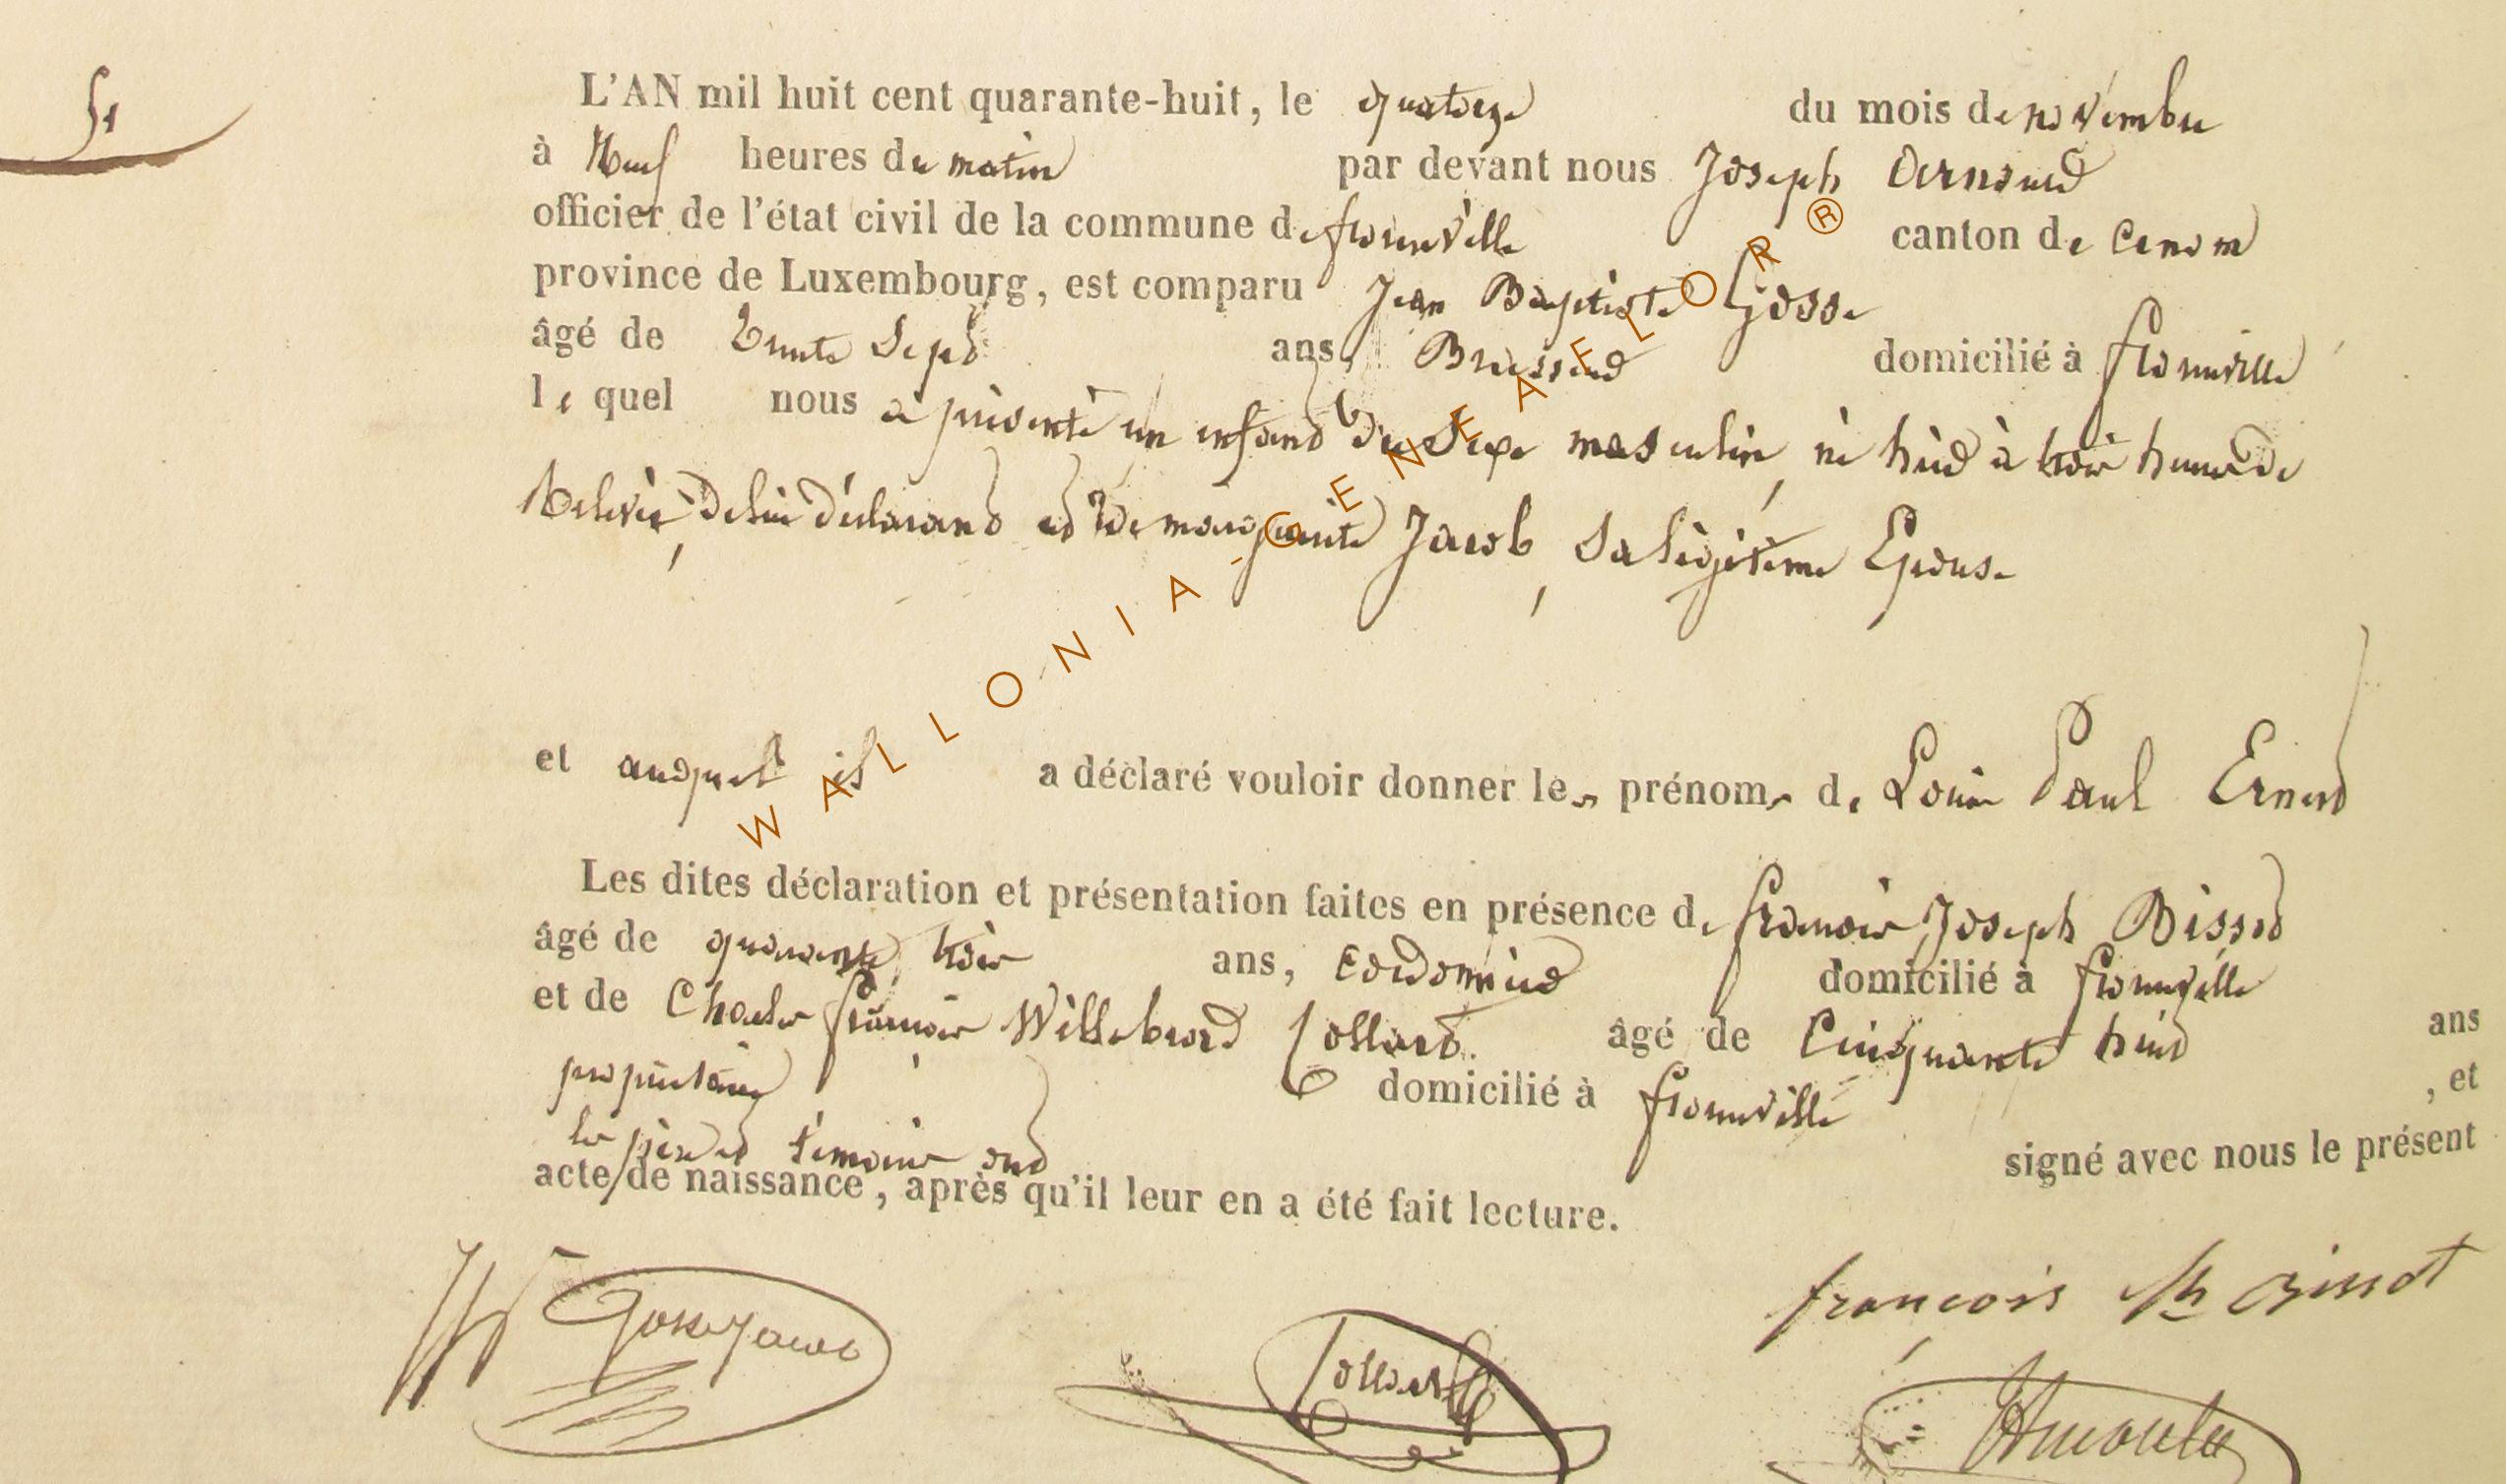 51
L'AN mil huit cent quarante-huit, le quatorze du mois de novembre
à Neuf heures du matin par devant nous Joseph Arnould
officier de l'état civil de la commune de florenville canton de
province de Luxembourg, est comparu Jean Baptiste Gosse
âgé de trente Sept ans, Brasseur domicilié à florenville
le quel nous a présenté un enfant du Sexe masculin, né hier à trois heures de
relevée, de lui déclarant et de marguerite Jacob, Sa légitime Epouse
et auquel il a déclaré vouloir donner les prénoms de Louis Paul Ernest
Les dites déclaration et présentation faites en présence de françois Joseph Bissot
âgé de quarante trois ans, Cordonnier domicilié à florenville
et de Charles françois Willebrord Collard âgé de Cinquante huit ans
propriétaire domicilié à florenville , et
les père et témoins ont signé avec nous le présent
acte de naissance, après qu'il leur en a été fait lecture.
Gosse Jacob
Collard
françois Jh Bissot
WALLONIA-GENEAELOR®